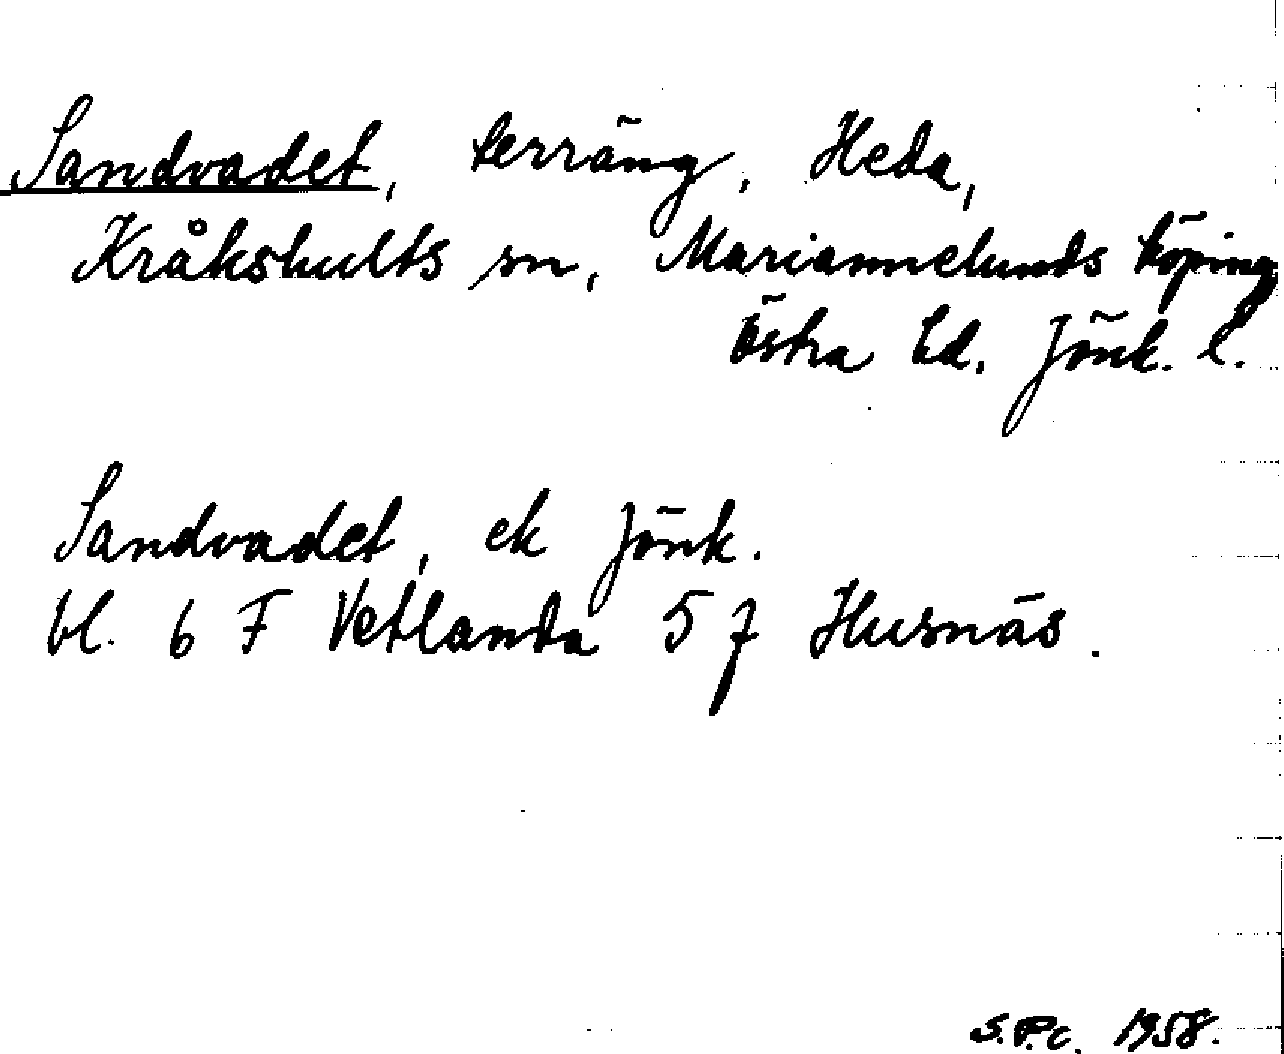 Sandvadet, terräng, Heda,
Kråkshults sn, Mariannelunds köping
Östra hd. Jönk. l.
Sandvadet, ek Jönk.
bl. 6 F Vetlanda 5 j Husnäs.
S.P.c. 1958.